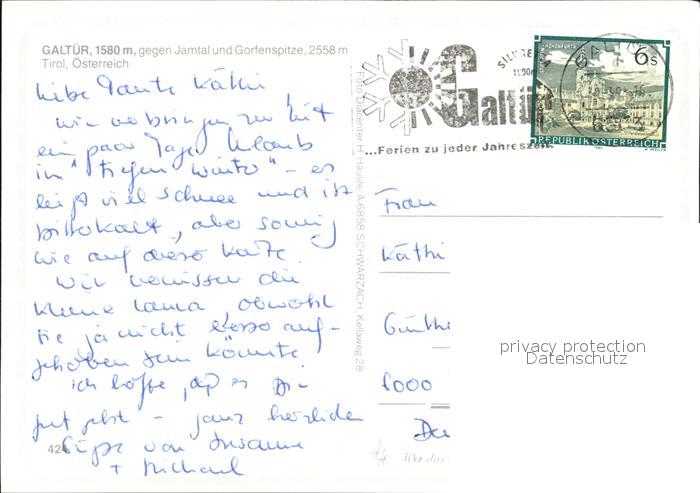 GALTÜR, 1580 m, gegen Jamtal und Gorfenspitze, 2558 m
Tirol, Österreich
Liebe Tante Käthi,
wir verbringen zur Zeit
ein paar Tage Urlaub
im "tiefen Winter" - es
liegt viel Schnee und ist
bitterkalt, aber sonnig
wie auf dieser Karte.
Wir vermissen die
kleine Laura, obwohl
sie ja nicht besser auf-
gehoben sein könnte.
Ich hoffe, daß es Dir
gut geht - ganz herzliche
Grüße von Susanne
+ Michael
424
Foto Diacenter H. Häusle, A-6858 SCHWARZACH, Kellaweg 28
Galtür
...Ferien zu jeder Jahreszeit
6 S
REPUBLIK ÖSTERREICH
Frau
Käthi
Günthe
8000
privacy protection
Datenschutz